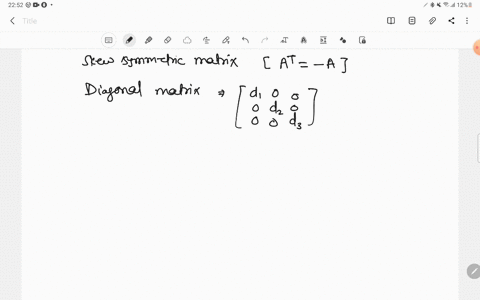 22:52
12%
Title
Skew symmetric matrix [ Aᵀ = -A ]
Diagonal matrix ⇒ [ d₁ 0 0
0 d₂ 0
0 0 d₃ ]